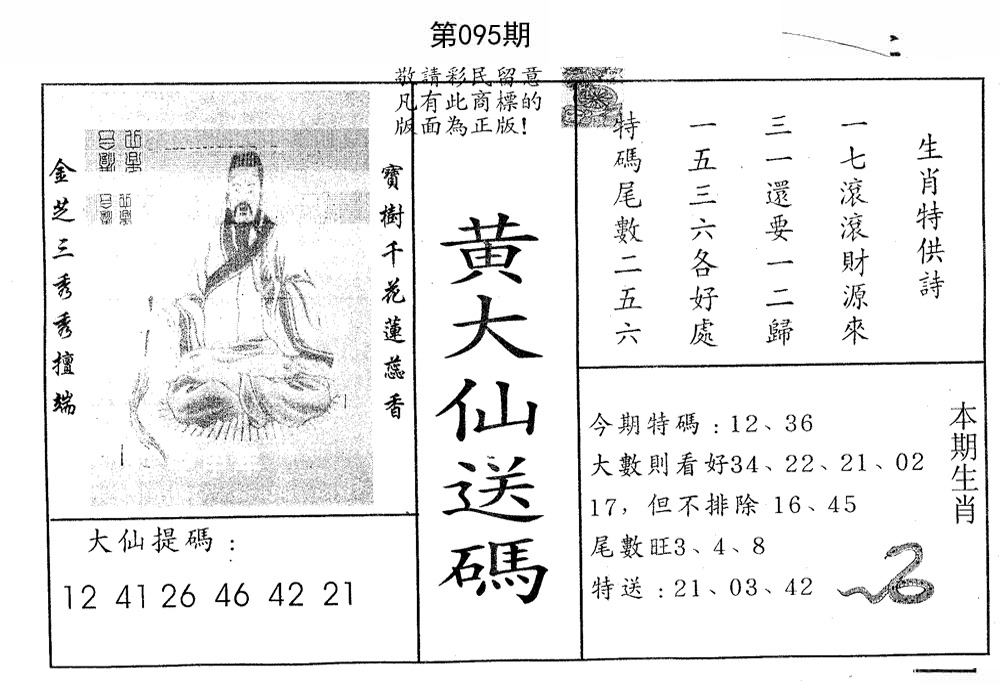 第095期
敬請彩民留意
凡有此商標的
版面為正版!
寶樹千花蓮蕊香
金芝三秀秀擅端
大仙提碼：
12 41 26 46 42 21
黃大仙送碼
生肖特供詩
一七滾滾財源來
三一還要一二歸
一五三六各好處
特碼尾數二五六
本期生肖
今期特碼：12、36
大數則看好34、22、21、02
17，但不排除 16、45
尾數旺3、4、8
特送：21、03、42